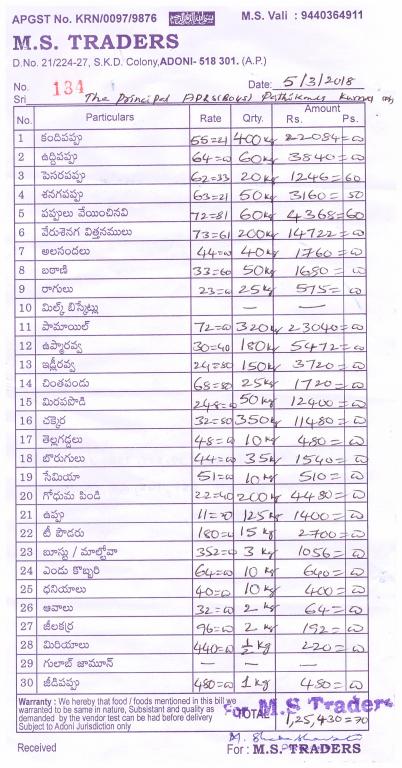 APGST No. KRN/0097/9876 M.S. Vali : 9440364911
M.S. TRADERS
D.No. 21/224-27, S.K.D. Colony, ADONI- 518 301. (A.P.)
No. 134 Date: 5/3/2018
Sri The Principal APRS(Boys)
No. Particulars Rate Qrty. Amount
Rs. Ps.
1 కందిపప్పు 55=21 400kg 22084=00
2 ఉద్దిపప్పు 64=00 60kg 3840=00
3 పెసరపప్పు 62=33 20kg 1246=60
4 శనగపప్పు 63=21 50kg 3160=50
5 పప్పులు వేయించినవి 72=81 60kg 4368=60
6 వేరుశెనగ విత్తనములు 73=61 200kg 14722=00
7 అలసందలు 44=00 40kg 1760=00
8 బఠాణి 33=60 50kg 1680=00
9 రాగులు 23=00 25kg 575=00
10 మిల్క్ బిస్కెట్లు — —
11 పామాయిల్ 72=00 320kg 23040=00
12 ఉప్మారవ్వ 30=40 180kg 5472=00
13 ఇడ్లీరవ్వ 24=80 150kg 3720=00
14 చింతపండు 68=80 25kg 1720=00
15 మిరపపొడి 248=00 50kg 12400=00
16 చక్కెర 32=80 350kg 11480=00
17 తెల్లగడ్డలు 48=00 10kg 480=00
18 బొరుగులు 44=00 35kg 1540=00
19 సేమియా 51=00 10kg 510=00
20 గోధుమ పిండి 22=40 200kg 4480=00
21 ఉప్పు 11=20 125kg 1400=00
22 టీ పౌడరు 180=00 15kg 2700=00
23 బూస్టు / మాల్టోవా 352=00 3kg 1056=00
24 ఎండు కొబ్బరి 64=00 10kg 640=00
25 ధనియాలు 40=00 10kg 400=00
26 ఆవాలు 32=00 2kg 64=00
27 జీలకర్ర 96=00 2kg 192=00
28 మిరియాలు 440=00 ½kg 220=00
29 గులాబ్ జామూన్ — —
30 జీడిపప్పు 480=00 1kg 480=00
Warranty : We hereby that food / foods mentioned in this bill we
warranted to be same in nature, Subsistant and quality as
demanded by the vendor test can be had before delivery
Subject to Adoni Jurisdiction only
TOTAL 1,25,430=70
For M.S Traders
Received For : M.S. TRADERS